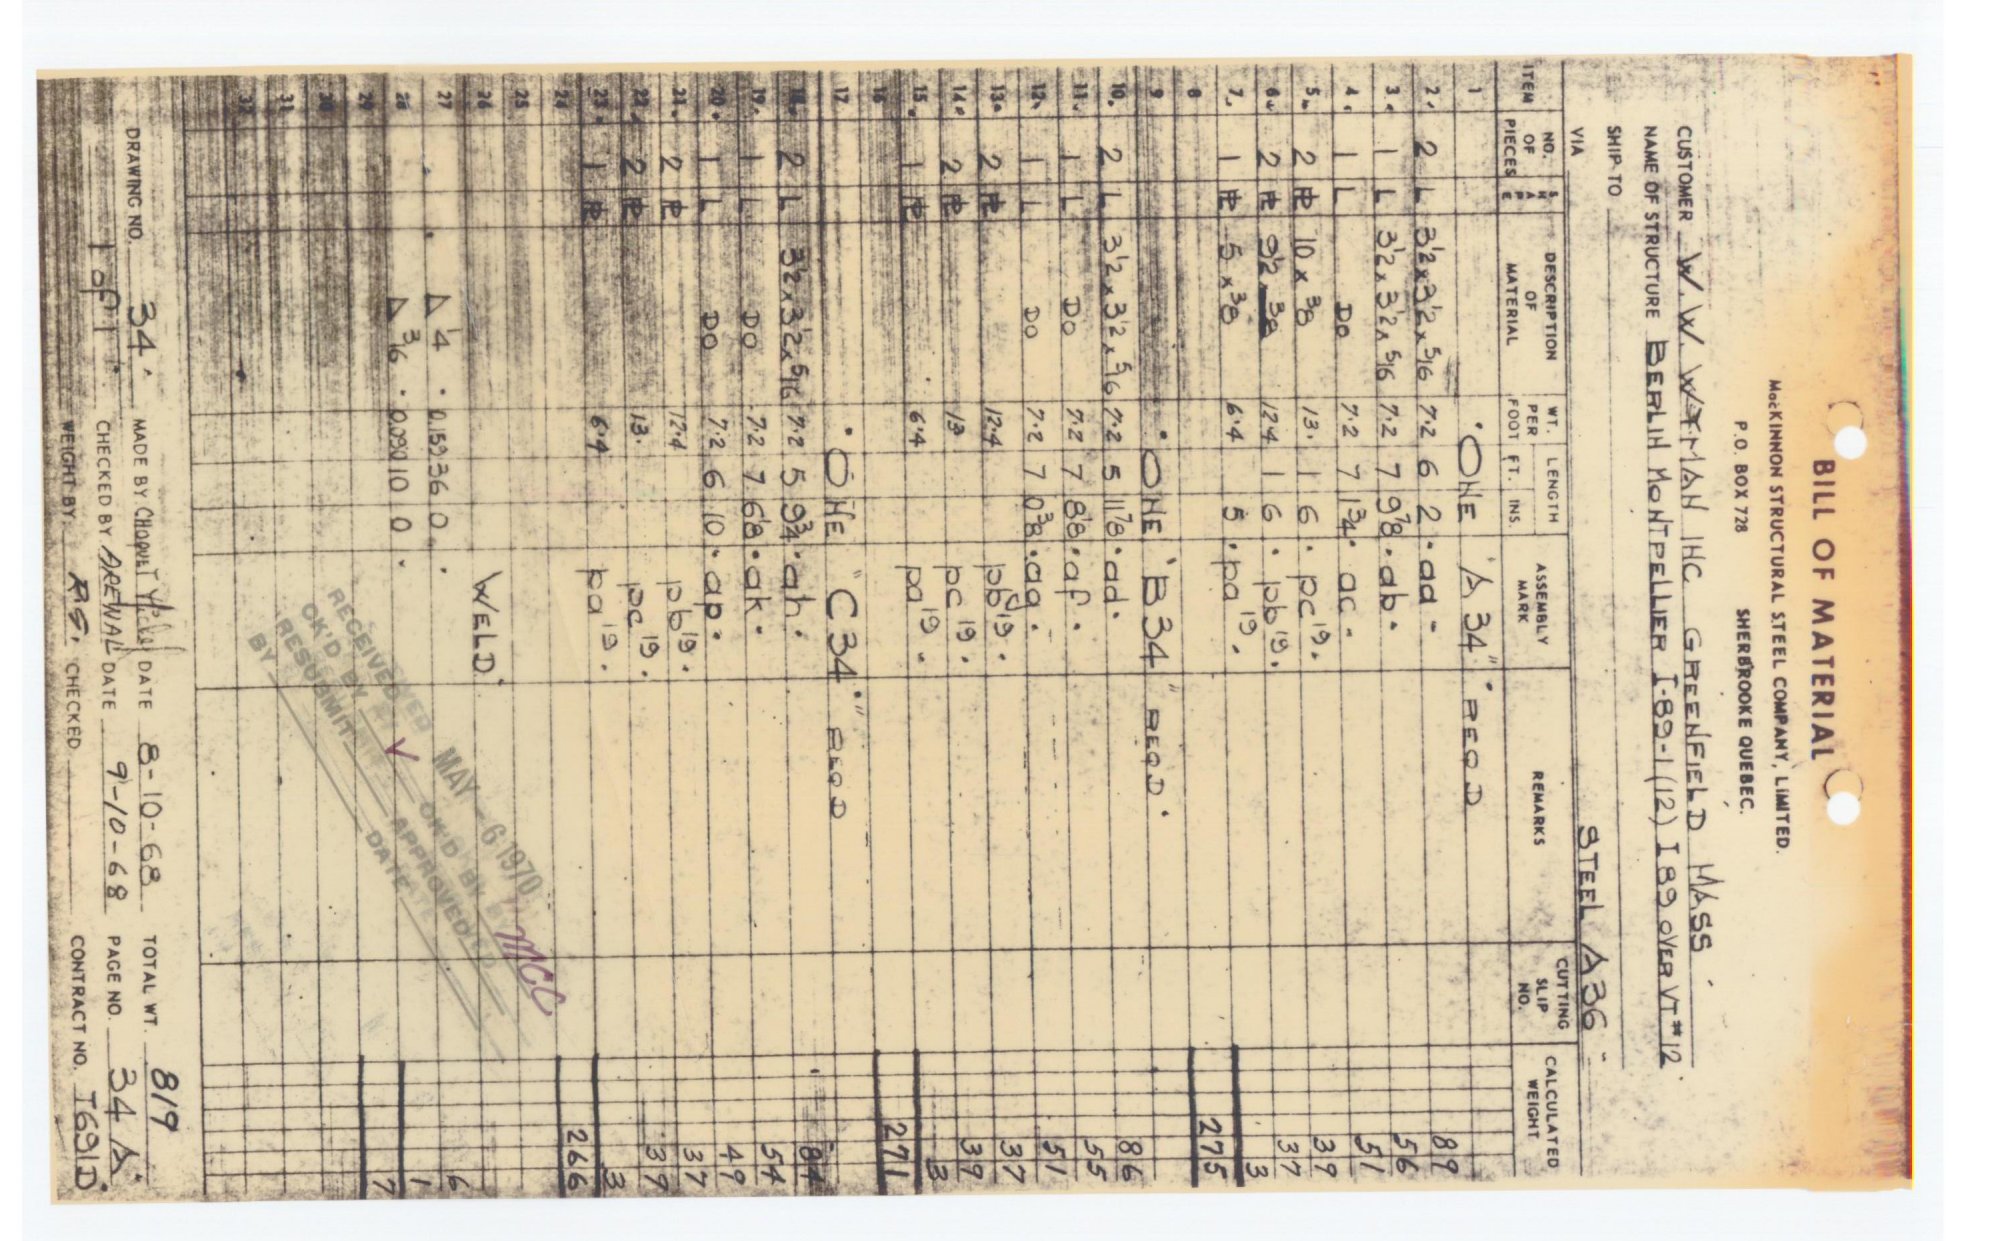 BILL OF MATERIAL
MacKINNON STRUCTURAL STEEL COMPANY, LIMITED.
P.O. BOX 728 SHERBROOKE QUEBEC.
CUSTOMER W. W. WYMAN INC. GREENFIELD MASS.
NAME OF STRUCTURE BERLIN MONTPELLIER I-89-1(12) I 89 OVER VT #12.
SHIP TO
VIA STEEL A36.
ITEM NO. OF PIECES SHAPE DESCRIPTION OF MATERIAL WT. PER FOOT LENGTH FT. INS. ASSEMBLY MARK REMARKS CUTTING SLIP NO. CALCULATED WEIGHT
1 ONE "A 34" REQD
2 2 L 3 1/2 x 3 1/2 x 5/16 7.2 6 2 aa 89
3 1 L 3 1/2 x 3 1/2 x 5/16 7.2 7 9 7/8 ab 56
4 1 L DO 7.2 7 1 3/4 ac 51
5 2 PL 10 x 3/8 13. 1 6 pc19 39
6 2 PL 9 1/2 x 3/8 12.4 1 6 pb19 37
7 1 PL 5 x 3/8 6.4 5 pa19 3
8 275
9 ONE "B 34" REQD.
10 2 L 3 1/2 x 3 1/2 x 5/16 7.2 5 11 7/8 ad 86
11 1 L DO 7.2 7 8 1/8 af 55
12 1 L DO 7.2 7 0 3/8 ag 51
13 2 PL 12.4 pb19 37
14 2 PL 13 pc19 39
15 1 PL 6.4 pa19 3
16 271
17 ONE "C 34" REQD
18 2 L 3 1/2 x 3 1/2 x 5/16 7.2 5 9 3/4 ah 84
19 1 L DO 7.2 7 6 1/8 ak 54
20 1 L DO 7.2 6 10 ap 49
21 2 PL 12.4 pb19 37
22 2 PL 13. pc19 39
23 1 PL 6.4 pa19 3
24 266
25
26 WELD
27 △ 1/4 0.159 36 0 6
28 △ 3/16 0.090 10 0 1
29 7
30
31
32
RECEIVED MAY - 6 1970
OK'D BY MCC
RESUBMIT APPROVED
BY DATE
DRAWING NO. 34 MADE BY CHOQUET DATE 8-10-68 TOTAL WT. 819
1 of 1 CHECKED BY DATE 9-10-68 PAGE NO. 34 A
WEIGHT BY R.S. CHECKED CONTRACT NO. T691D